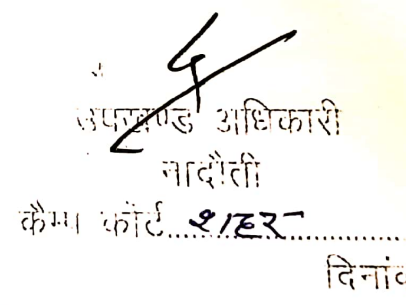 उपखण्ड अधिकारी
नादौती
कैम्प कोर्ट..शहर............
दिनांक